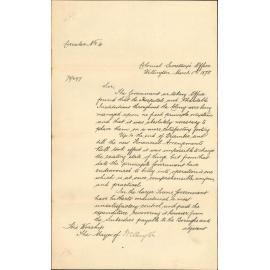 Circular No. 6
Colonial Secretary's Office
Wellington, March 1st 1878
Sir,
The Government on taking Office
found that the Hospitals and Charitable
Institutions throughout the Colony were being
managed upon no fixed principle
and that it was absolutely necessary to
place them on a more satisfactory footing
Up to the end of December and
till the new Financial Arrangements
took effect it was impossible to change
the existing state of things but from that
date the Government have
endeavoured to bring into operation
which is at once comprehensive
and practical.
In the larger Towns Government
have hitherto maintained
unsatisfactory control, and paid the
expenditure, recovering it however from
the Subsidies payable to the Boroughs and
adjacent
His Worship
The Mayor of Wellington